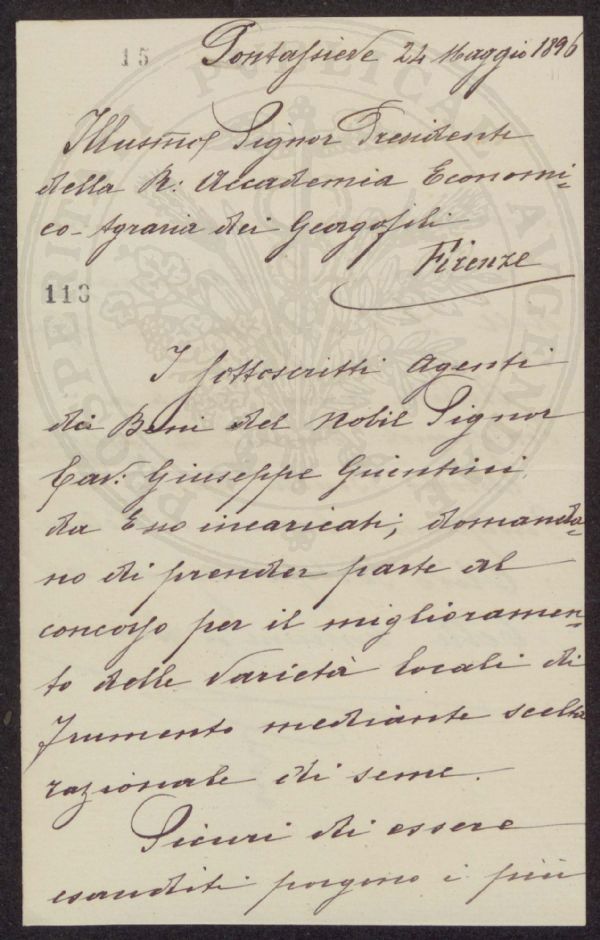 15
Pontassieve 24 Maggio 1896
Illusmo Signor Presidente
della R: Accademia Economi=
co-Agraria dei Georgofili
Firenze
113
I sottoscritti Agenti
dei Beni del Nobil Signor
Cav: Giuseppe Guentini
da Esso incaricati, domanda=
no di prender parte al
concorso per il miglioramen=
to delle varietà locali di
frumento mediante scelta
razionale di seme.
Sicuri di essere
esauditi porgono i più
PROSPERITATI PUBLICAE AUGENDAE